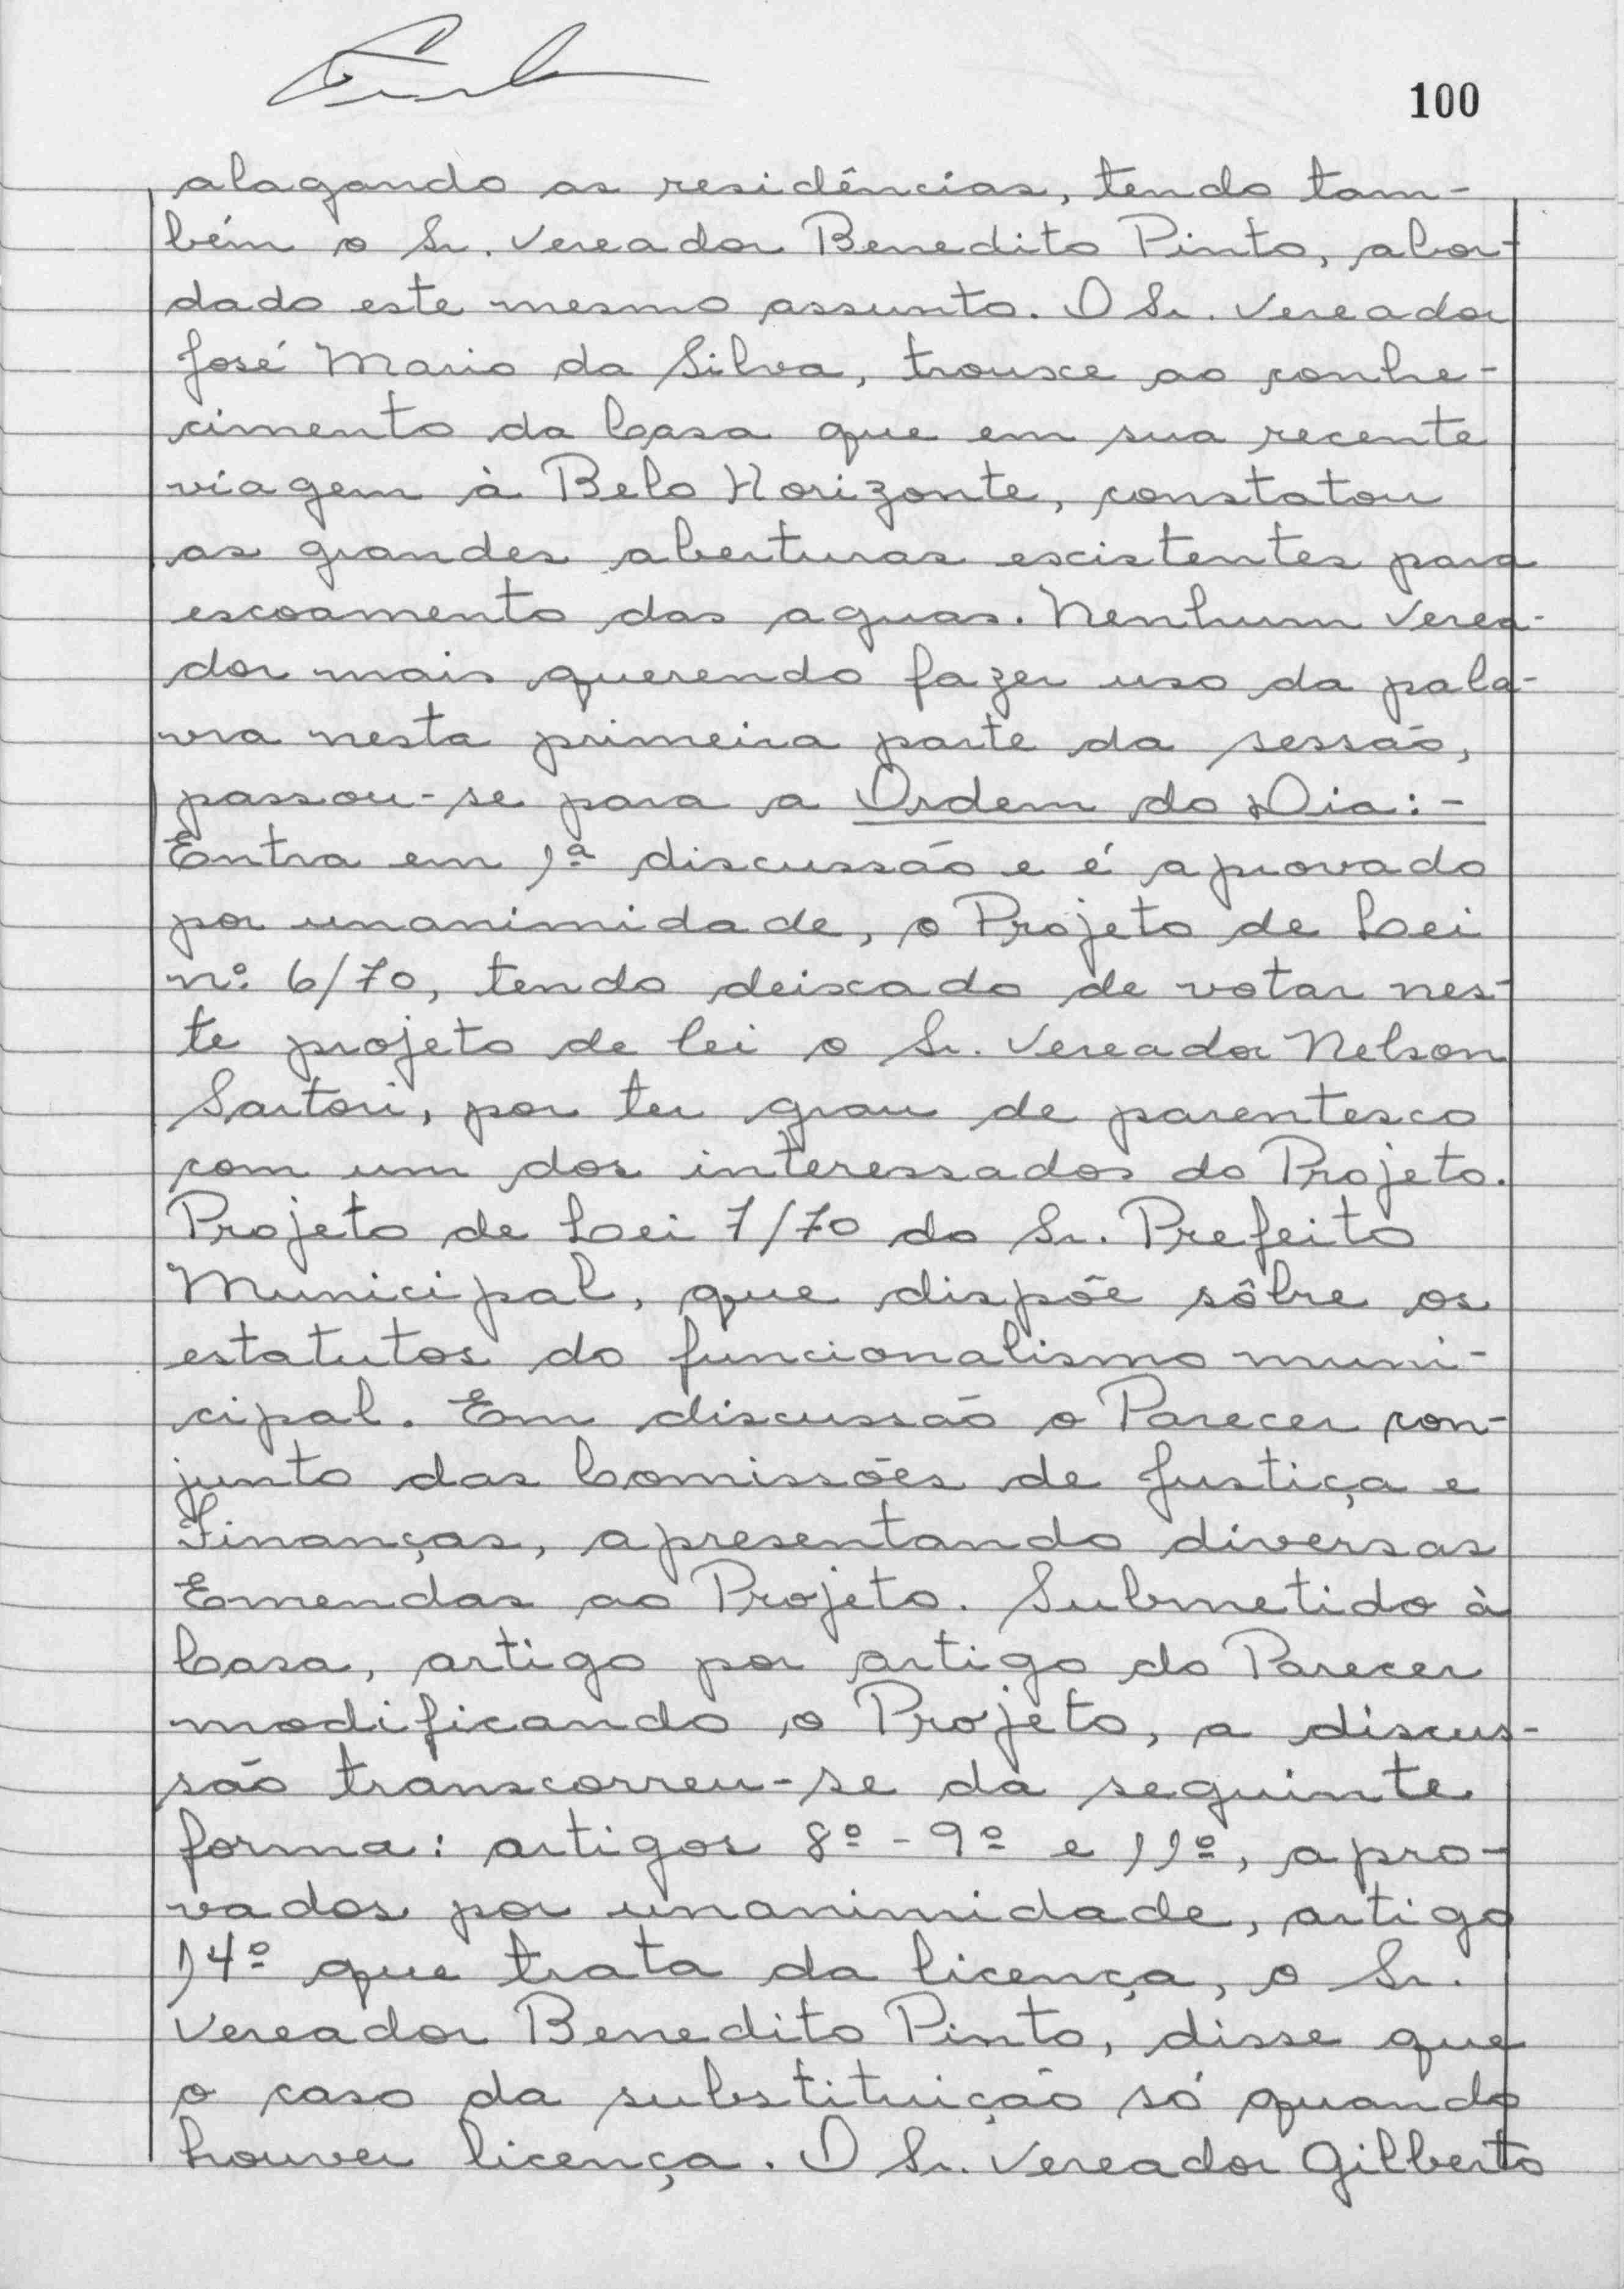 100
alagando as residências, tendo tam-
bém o Sr. Vereador Benedito Pinto, abor-
dado este mesmo assunto. O Sr. Vereador
José Mario da Silva, trouxe ao conhe-
cimento da Casa que em sua recente
viagem à Belo Horizonte, constatou
as grandes aberturas existentes para
escoamento das aguas. Nenhum Verea-
dor mais querendo fazer uso da pala-
vra nesta primeira parte da sessão,
passou-se para a Ordem do Dia:-
Entra em 1ª discussão e é aprovado
por unanimidade, o Projeto de Lei
nº 6/70, tendo deixado de votar nes-
te projeto de lei o Sr. Vereador Nelson
Sartori, por ter grau de parentesco
com um dos interessados do Projeto.
Projeto de Lei 7/70 do Sr. Prefeito
Municipal, que dispõe sôbre os
estatutos do funcionalismo muni-
cipal. Em discussão o Parecer con-
junto das Comissões de Justiça e
Finanças, apresentando diversas
Emendas ao Projeto. Submetido à
Casa, artigo por artigo do Parecer
modificando o Projeto, a discus-
são transcorreu-se da seguinte
forma: artigos 8º - 9º e 11º, apro-
vados por unanimidade, artigo
14º que trata da licença, o Sr.
Vereador Benedito Pinto, disse que
o caso da substituição só quando
houver licença. O Sr. Vereador Gilberto